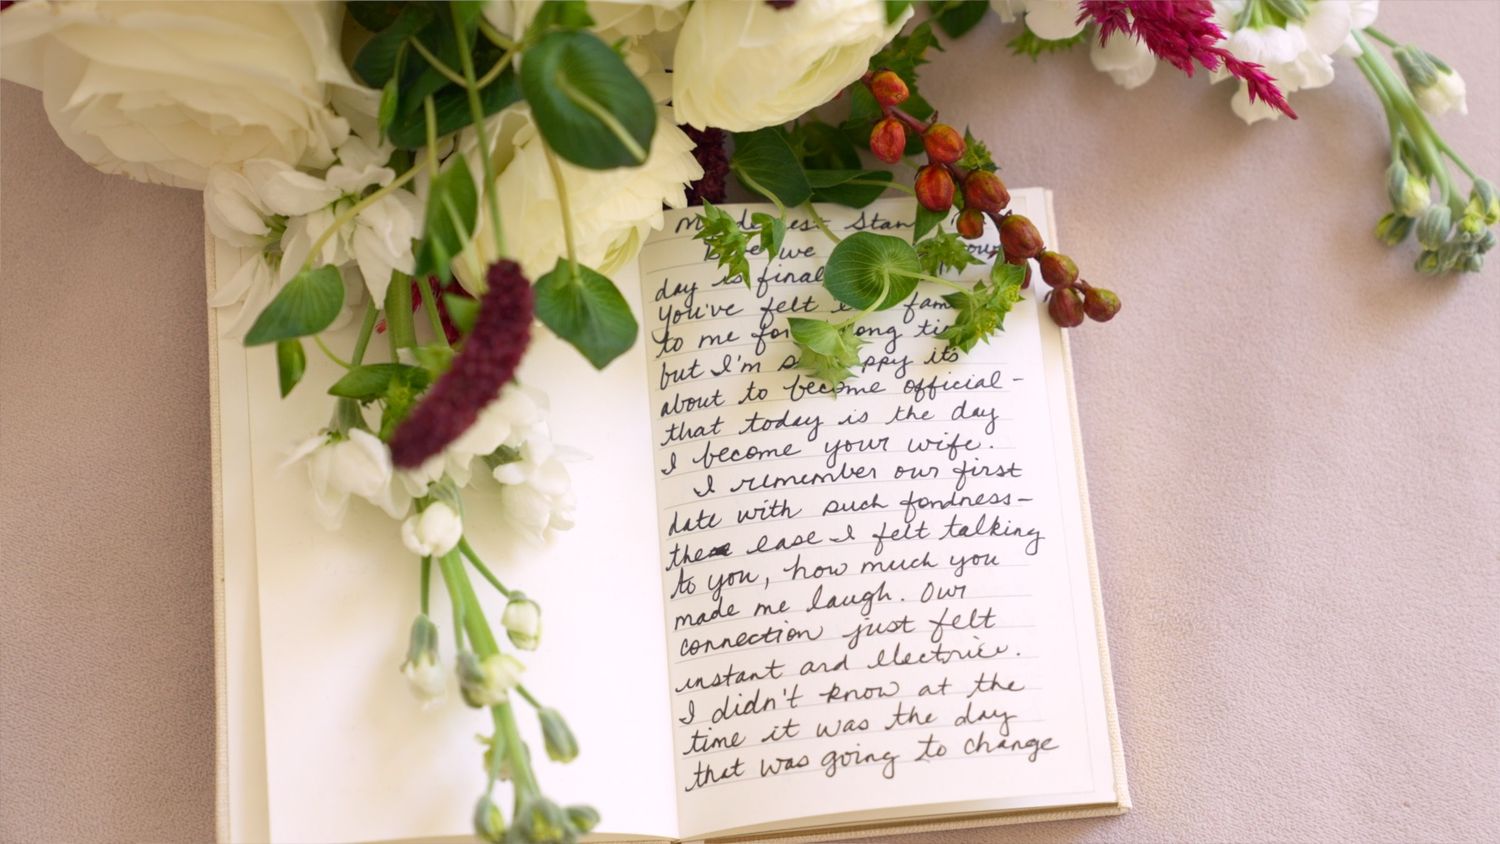 Stan
we
day is final
You've felt fam
to me for ong ti
but I'm s ppy it's
about to become official-
that today is the day
I become your wife.
I remember our first
date with such fondness-
the ease I felt talking
to you, how much you
made me laugh. Our
connection just felt
instant and electric.
I didn't know at the
time it was the day
that was going to change